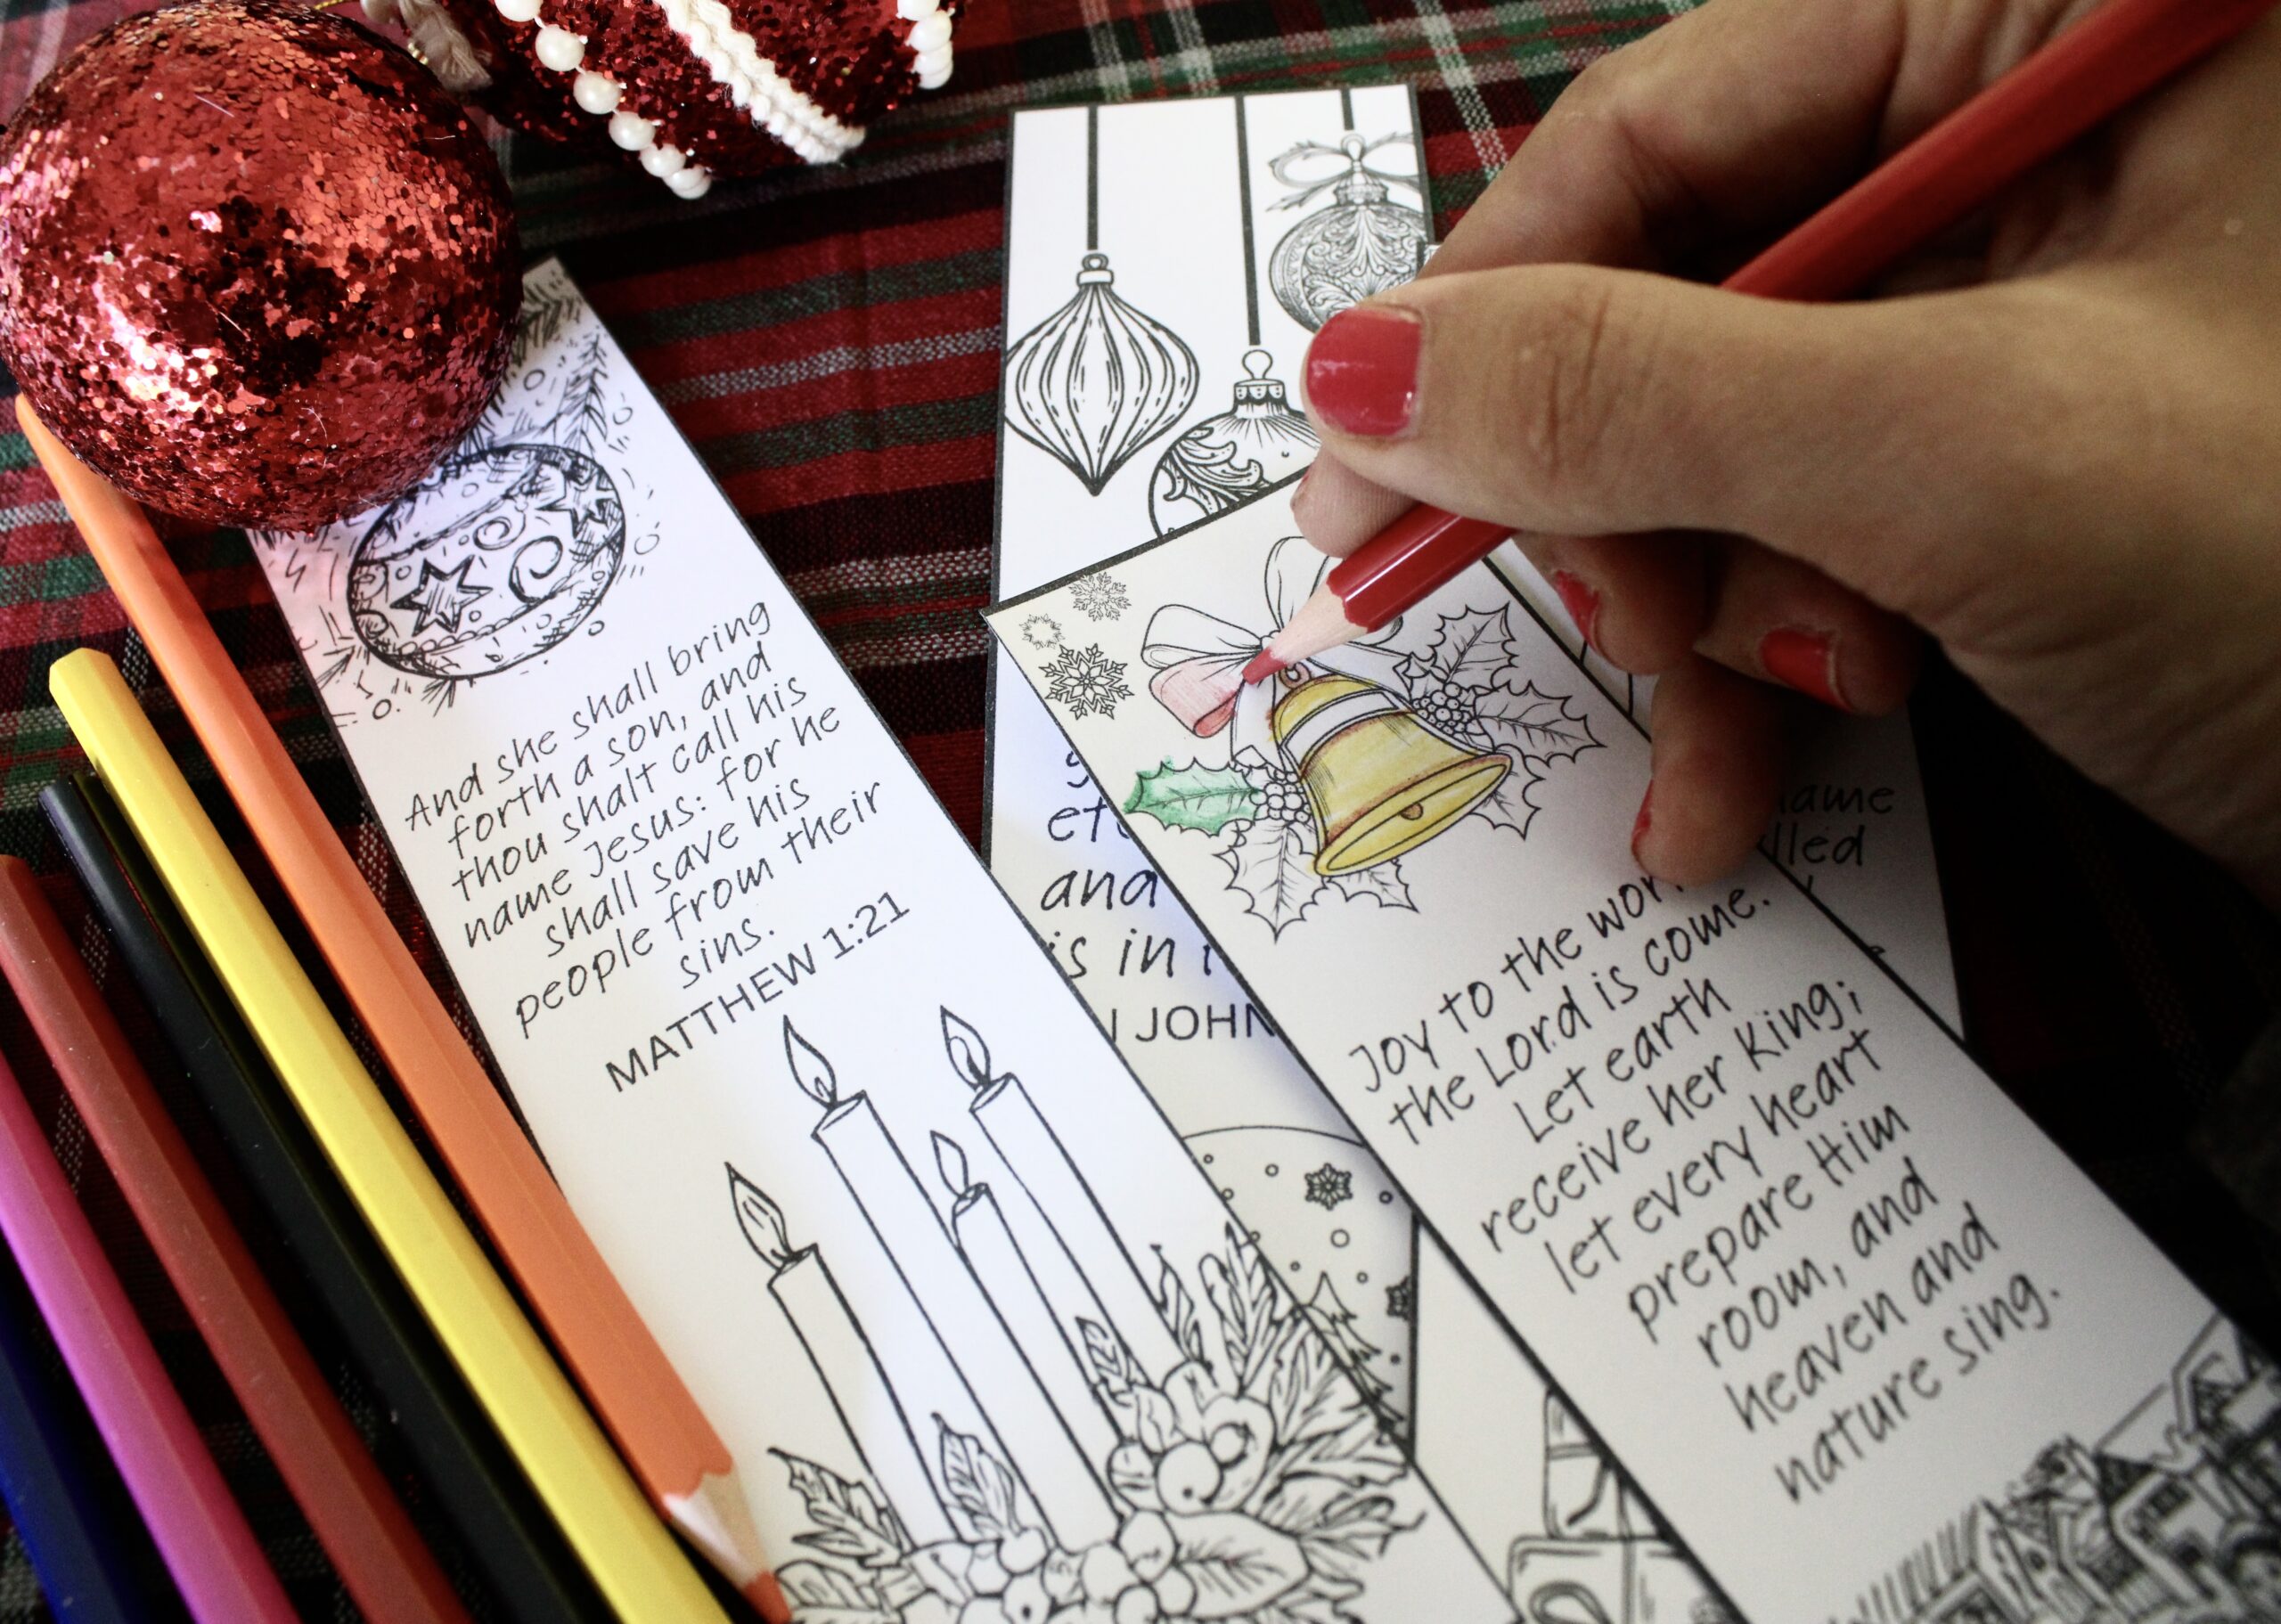 And she shall bring
forth a son, and
thou shalt call his
name Jesus: for he
shall save his
people from their
sins.
MATTHEW 1:21
and
is in
JOHN
Joy to the
the Lord is come.
Let earth
receive her King;
let every heart
prepare Him
room, and
heaven and
nature sing.